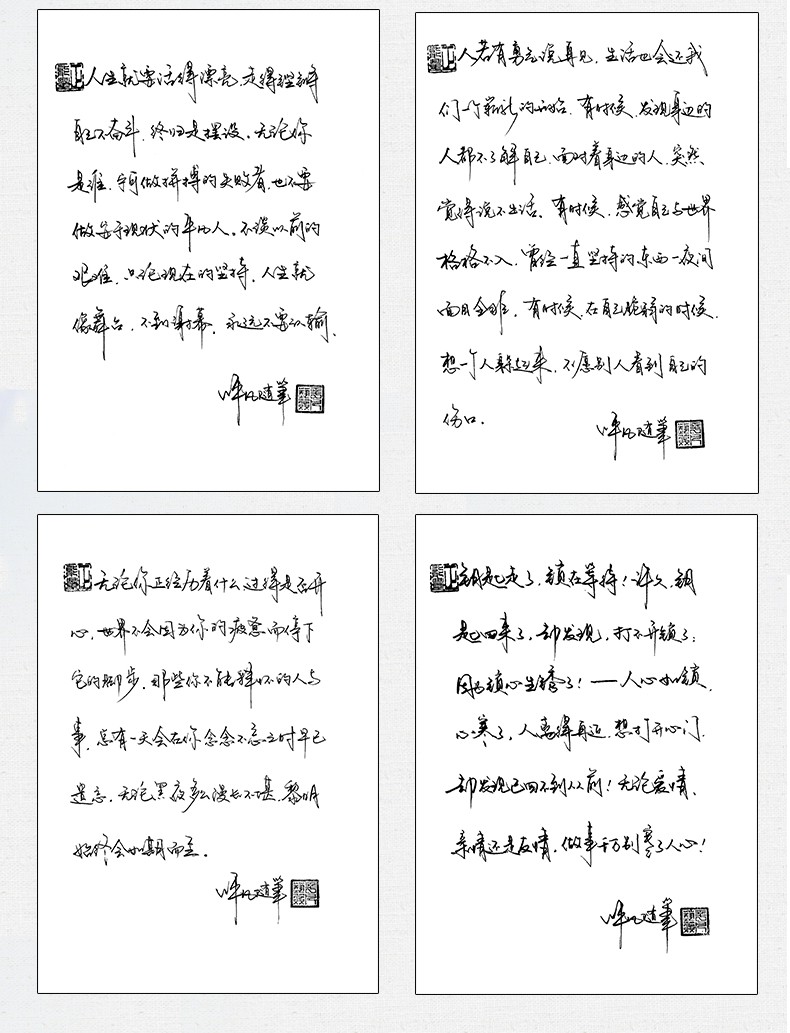 人生就要活得漂亮，走得铿锵
自己不奋斗，终归是摆设。无论你
是谁，宁可做拼搏的失败者，也不要
做安于现状的平凡人。不谈以前的
艰难，只论现在的坚持。人生就
像舞台，不到谢幕，永远不要认输。
随笔
人若有勇气说再见，生活也会还我
们一个崭新的开始。有时候，发现身边的
人都不了解自己，面对着身边的人，突然
觉得说不出话。有时候，感觉自己与世界
格格不入，曾经一直坚持的东西一夜间
面目全非。有时候，在自己脆弱的时候，
想一个人躲起来，不愿别人看到自己的
伤口。
随笔
无论你正经历着什么，过得是否开
心，世界不会因为你的疲惫而停下
它的脚步。那些你不能释怀的人与
事，总有一天会在你念念不忘之时早已
遗忘。无论黑夜多么漫长不堪，黎明
始终会如期而至。
随笔
钥匙走了，锁在等待！许久，钥
匙回来了，却发现，打不开锁了；
因为锁心生锈了！——人心如锁，
心寒了，人离得再近，想打开心门，
却发现已回不到从前！无论爱情，
亲情还是友情，做事千万别寒了人心！
随笔